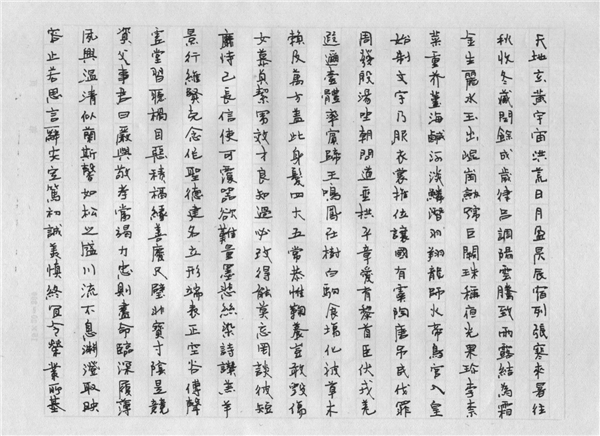 天地玄黃宇宙洪荒日月盈昃辰宿列張寒來暑往
秋收冬藏閏餘成歲律呂調陽雲騰致雨露結為霜
金生麗水玉出崑崗劍號巨闕珠稱夜光果珍李柰
菜重芥薑海鹹河淡鱗潛羽翔龍師火帝鳥官人皇
始制文字乃服衣裳推位讓國有虞陶唐弔民伐罪
周發殷湯坐朝問道垂拱平章愛育黎首臣伏戎羌
遐邇壹體率賓歸王鳴鳳在樹白駒食場化被草木
賴及萬方蓋此身髮四大五常恭惟鞠養豈敢毀傷
女慕貞絜男效才良知過必改得能莫忘罔談彼短
靡恃己長信使可覆器欲難量墨悲絲染詩讚羔羊
景行維賢克念作聖德建名立形端表正空谷傳聲
虛堂習聽禍因惡積福緣善慶尺璧非寶寸陰是競
資父事君曰嚴與敬孝當竭力忠則盡命臨深履薄
夙興溫凊似蘭斯馨如松之盛川流不息淵澄取映
容止若思言辭安定篤初誠美慎終宜令榮業所基